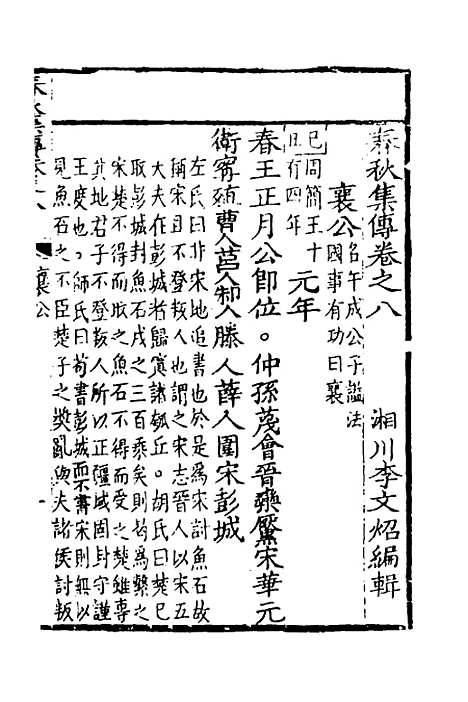 春秋集傳卷之八
湘川李文炤編輯
襄公名午成公子謚法
國事有功曰襄
己丑周簡王十
有四年
元年
春王正月公卽位。仲孫蔑會晉欒黶宋華元
衛甯殖曹人莒人邾人滕人薛人圍宋彭城
左氏曰非宋地追書也於是爲宋討魚石故
稱宋且不登叛人也謂之宋志晉人以宋五
大夫在彭城者歸寘諸瓠丘。胡氏曰楚已
取彭城封魚石戍之三百乘矣則曷爲繫之
宋楚不得而取之魚石不得而受之楚雖專
其地君子不登叛人所以正疆域固封守謹
王度也。師氏曰苟書彭城而不書宋則無以
見魚石之不臣楚子之獎亂與夫諸侯討叛
襄公
一